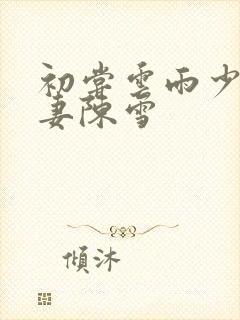 初嘗雲雨少
妻陳雪
傾沐